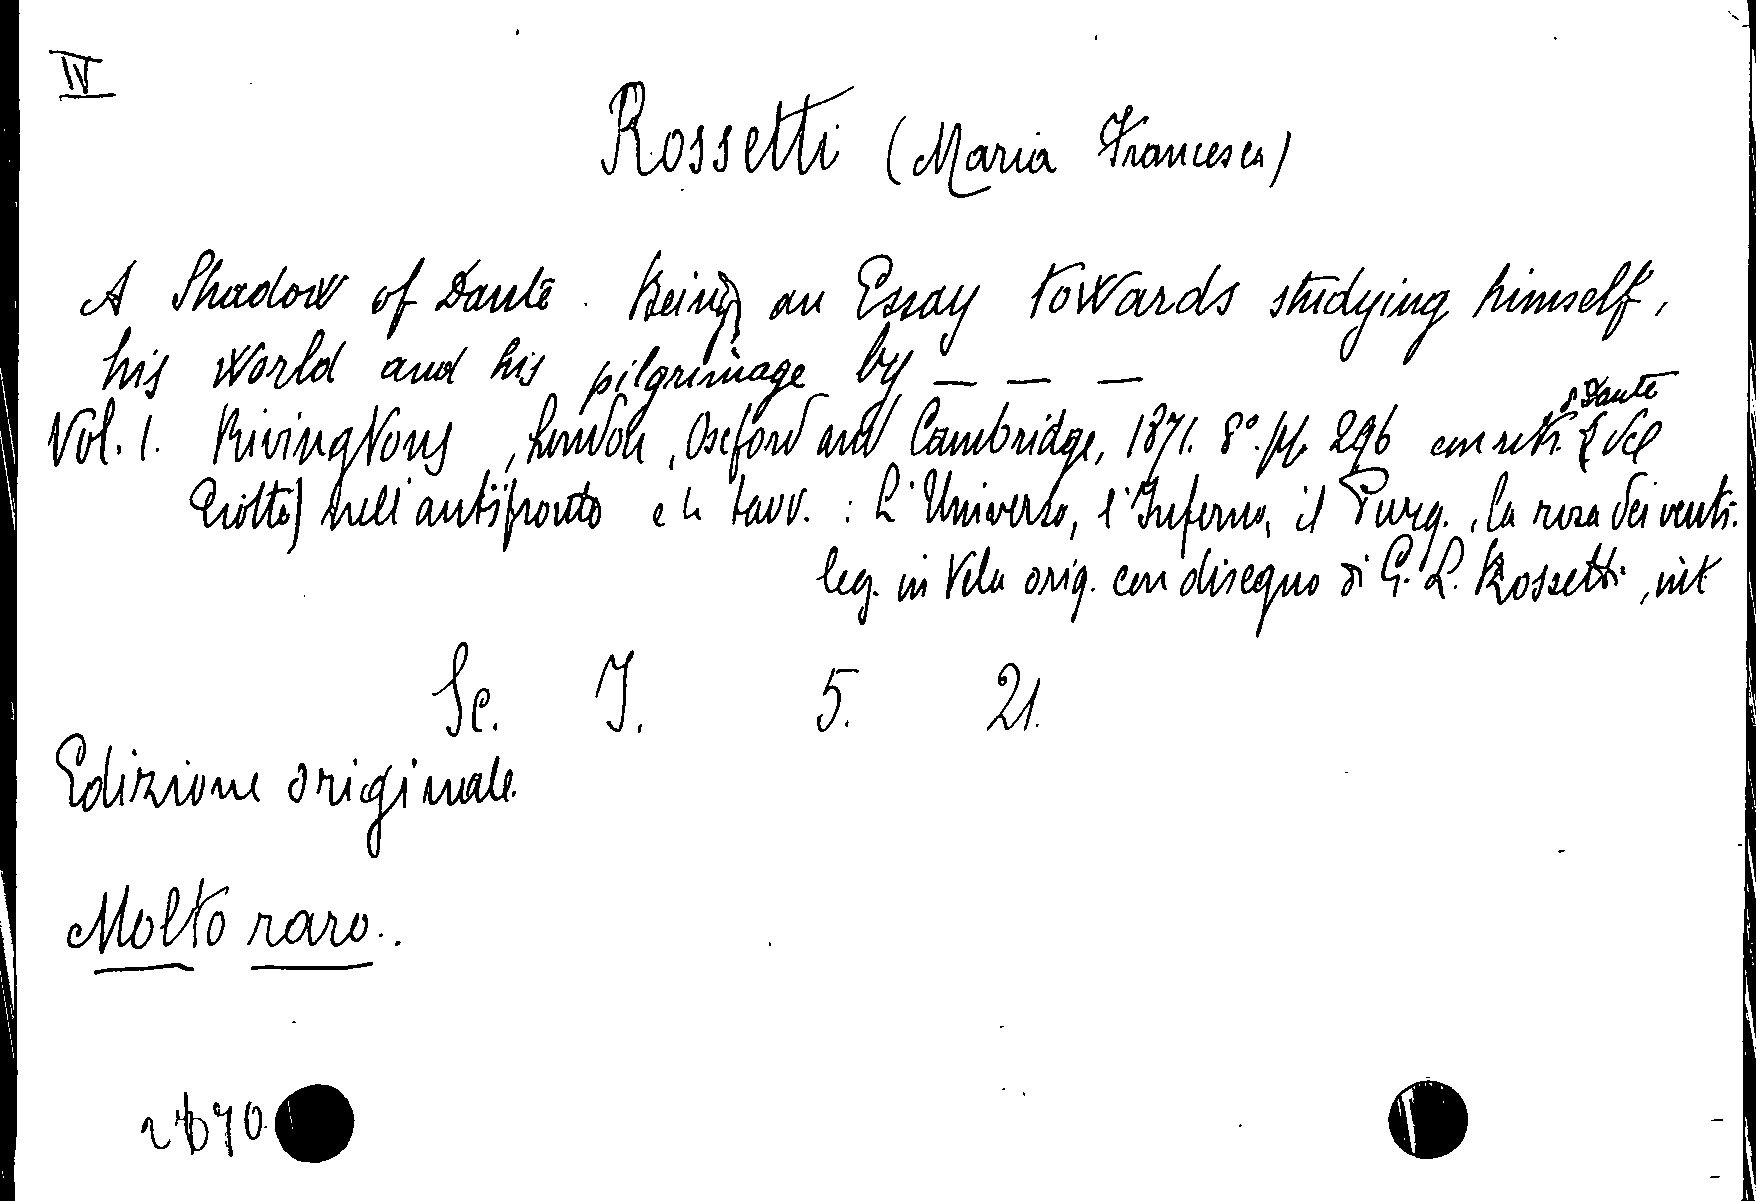 IV
Rossetti (Maria Francesca)
A Shadow of Dante. Being an Essay towards studying himself,
his world and his pilgrimage by — — —
Vol. 1. Rivingtons, London, Oxford and Cambridge, 1871. 8°. pp. 296 con ritr. di Dante (del
Giotto) nell'antifronto e tavv. : L'Universo, l'Inferno, il Purg., la rosa dei venti.
leg. in tela orig. con disegno di G. Rossetti, int
Sc. I. 5. 21.
Edizione originale.
Molto raro..